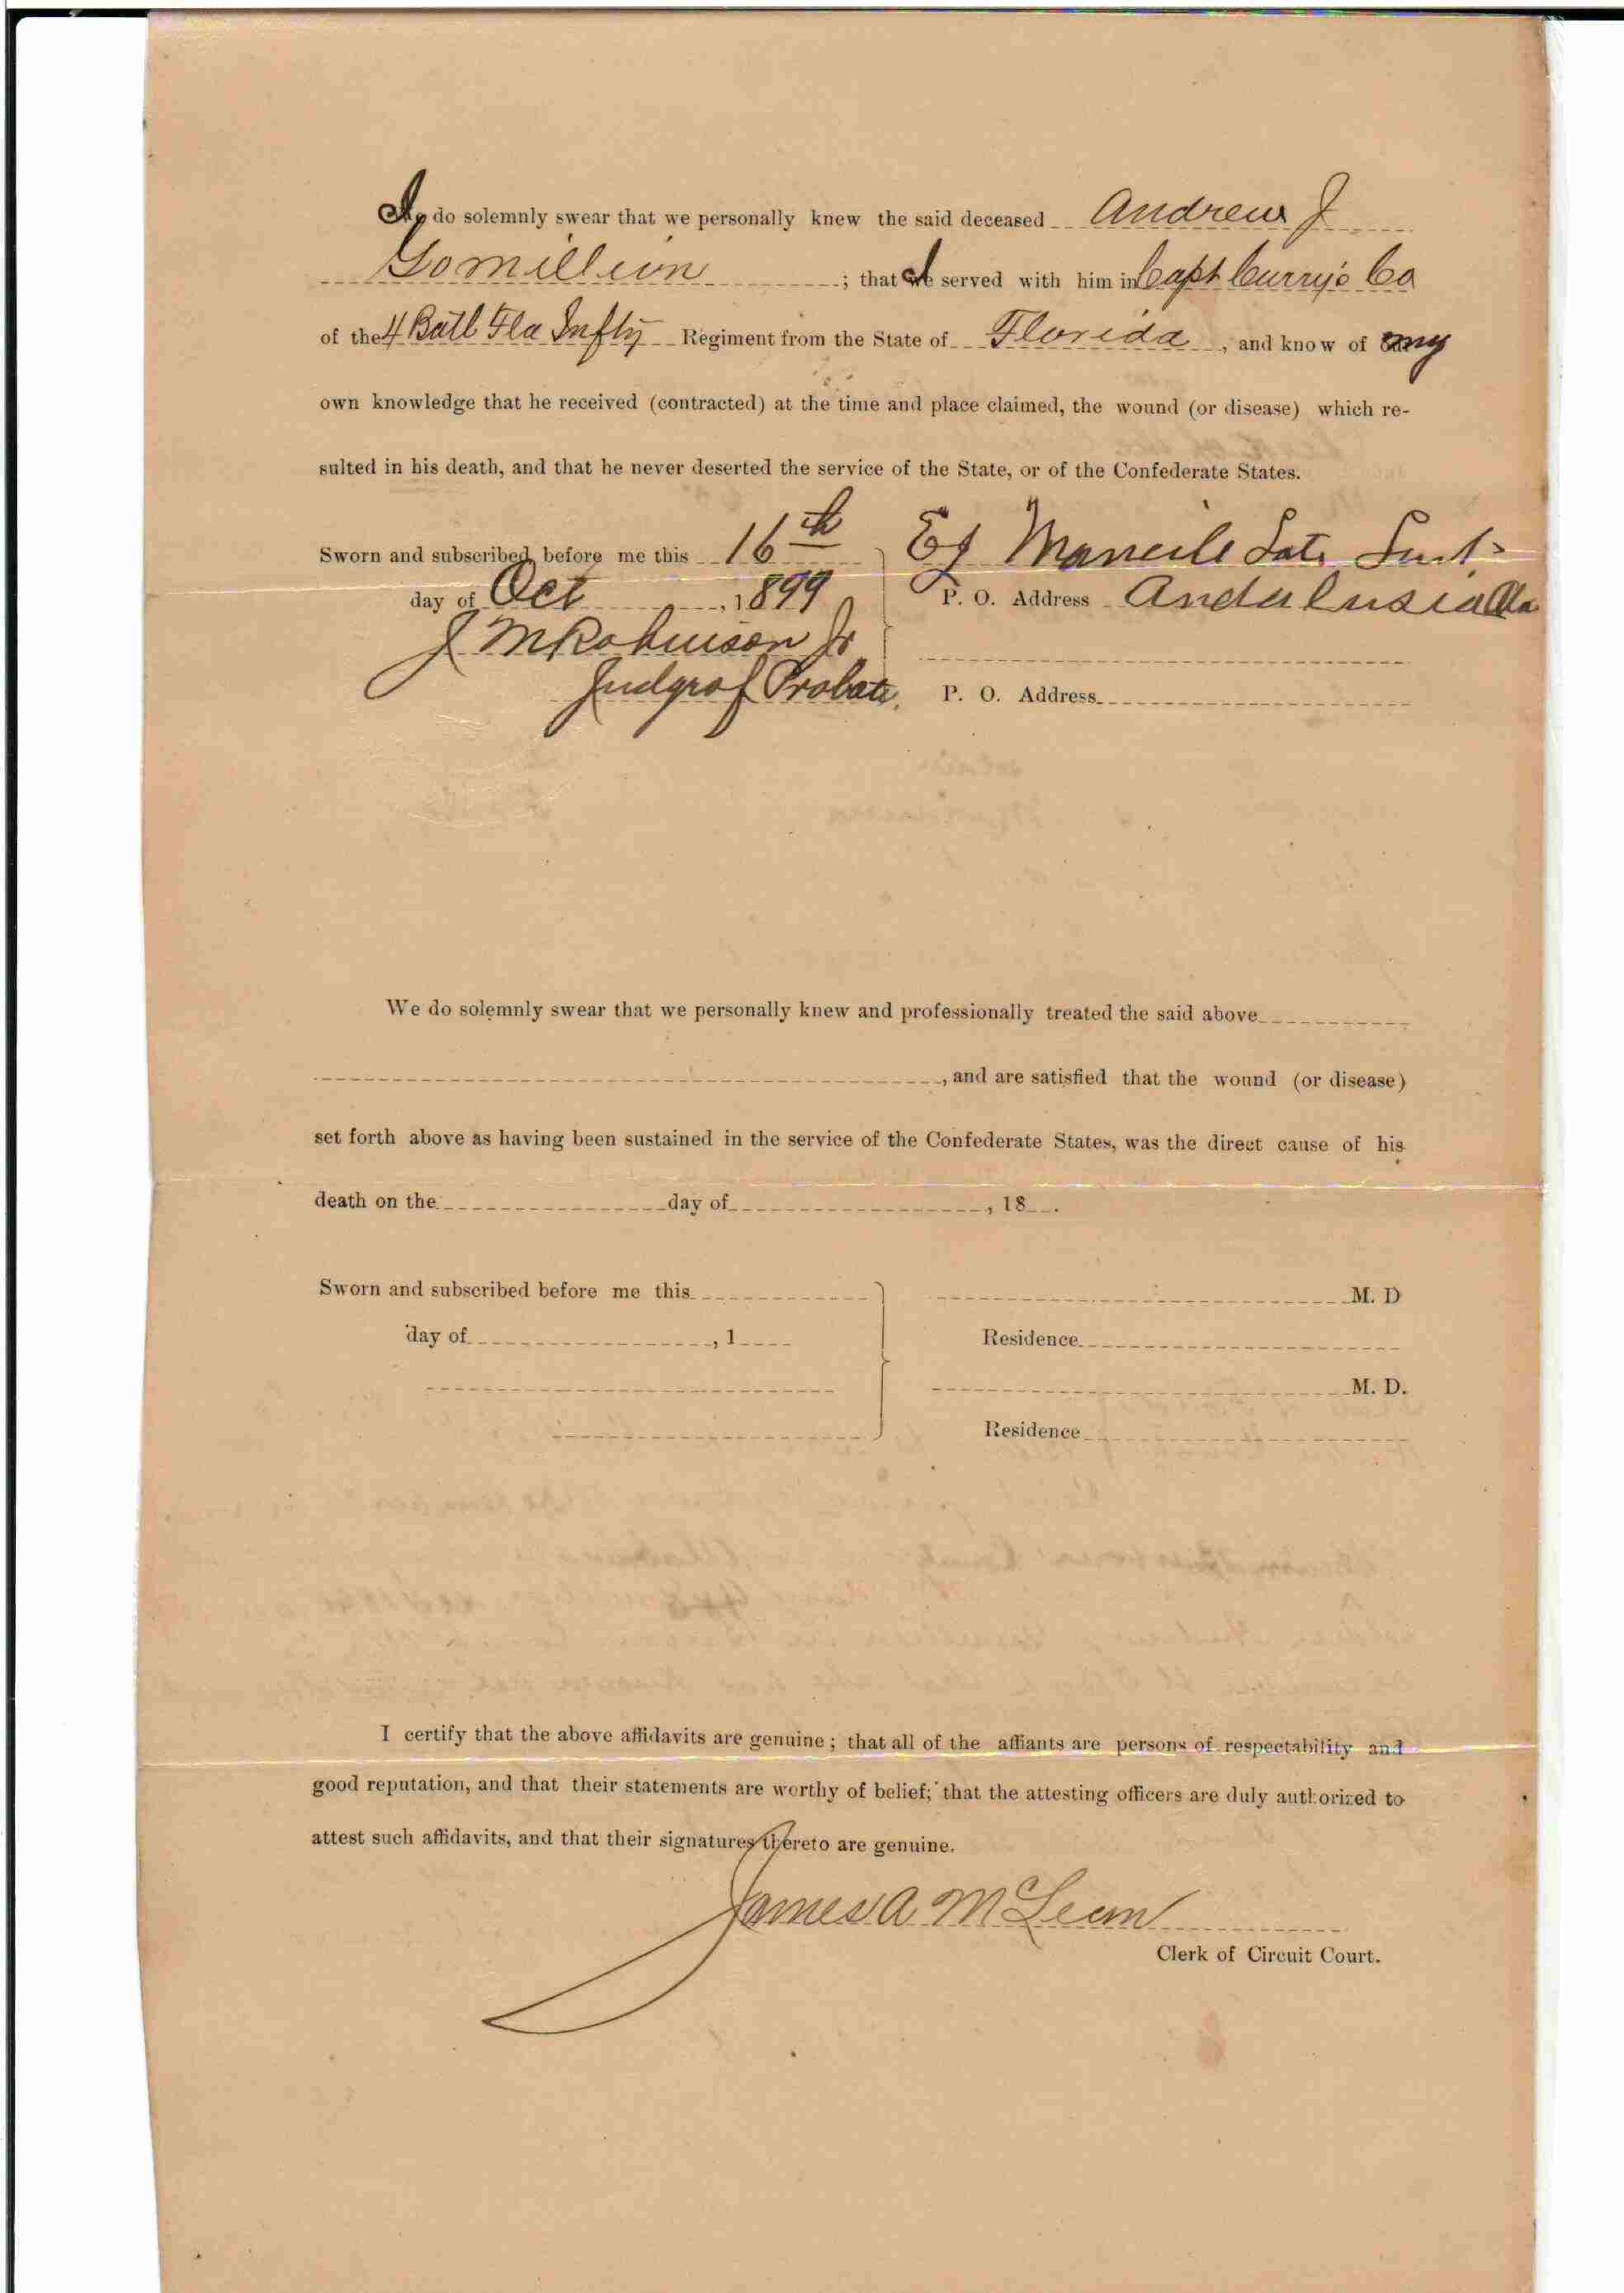 I, do solemnly swear that we personally knew the said deceased Andrew J
Gomillion ; that I served with him in Capt Curry's Co
of the 4 Batl Fla Infty Regiment from the State of Florida , and know of my
own knowledge that he received (contracted) at the time and place claimed, the wound (or disease) which re-
sulted in his death, and that he never deserted the service of the State, or of the Confederate States.
Sworn and subscribed before me this 16th
day of Oct , 1899
J M Robinson Jr
Judge of Probate.
E J Mancill Late
P. O. Address Andalusia Ala
P. O. Address
We do solemnly swear that we personally knew and professionally treated the said above
, and are satisfied that the wound (or disease)
set forth above as having been sustained in the service of the Confederate States, was the direct cause of his
death on the day of , 18 .
Sworn and subscribed before me this
day of , 1
M. D
Residence
M. D.
Residence
I certify that the above affidavits are genuine ; that all of the affiants are persons of respectability and
good reputation, and that their statements are worthy of belief; that the attesting officers are duly authorized to
attest such affidavits, and that their signatures thereto are genuine.
James A McLean
Clerk of Circuit Court.